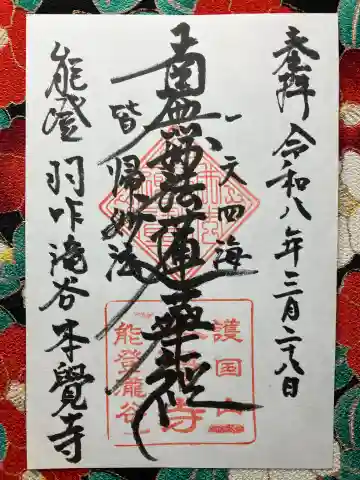 参拝 令和八年三月二八日
一天四海
南無妙法蓮華経
皆帰妙法
能登 羽咋滝谷本覺寺
護国山
寺
能登瀧谷